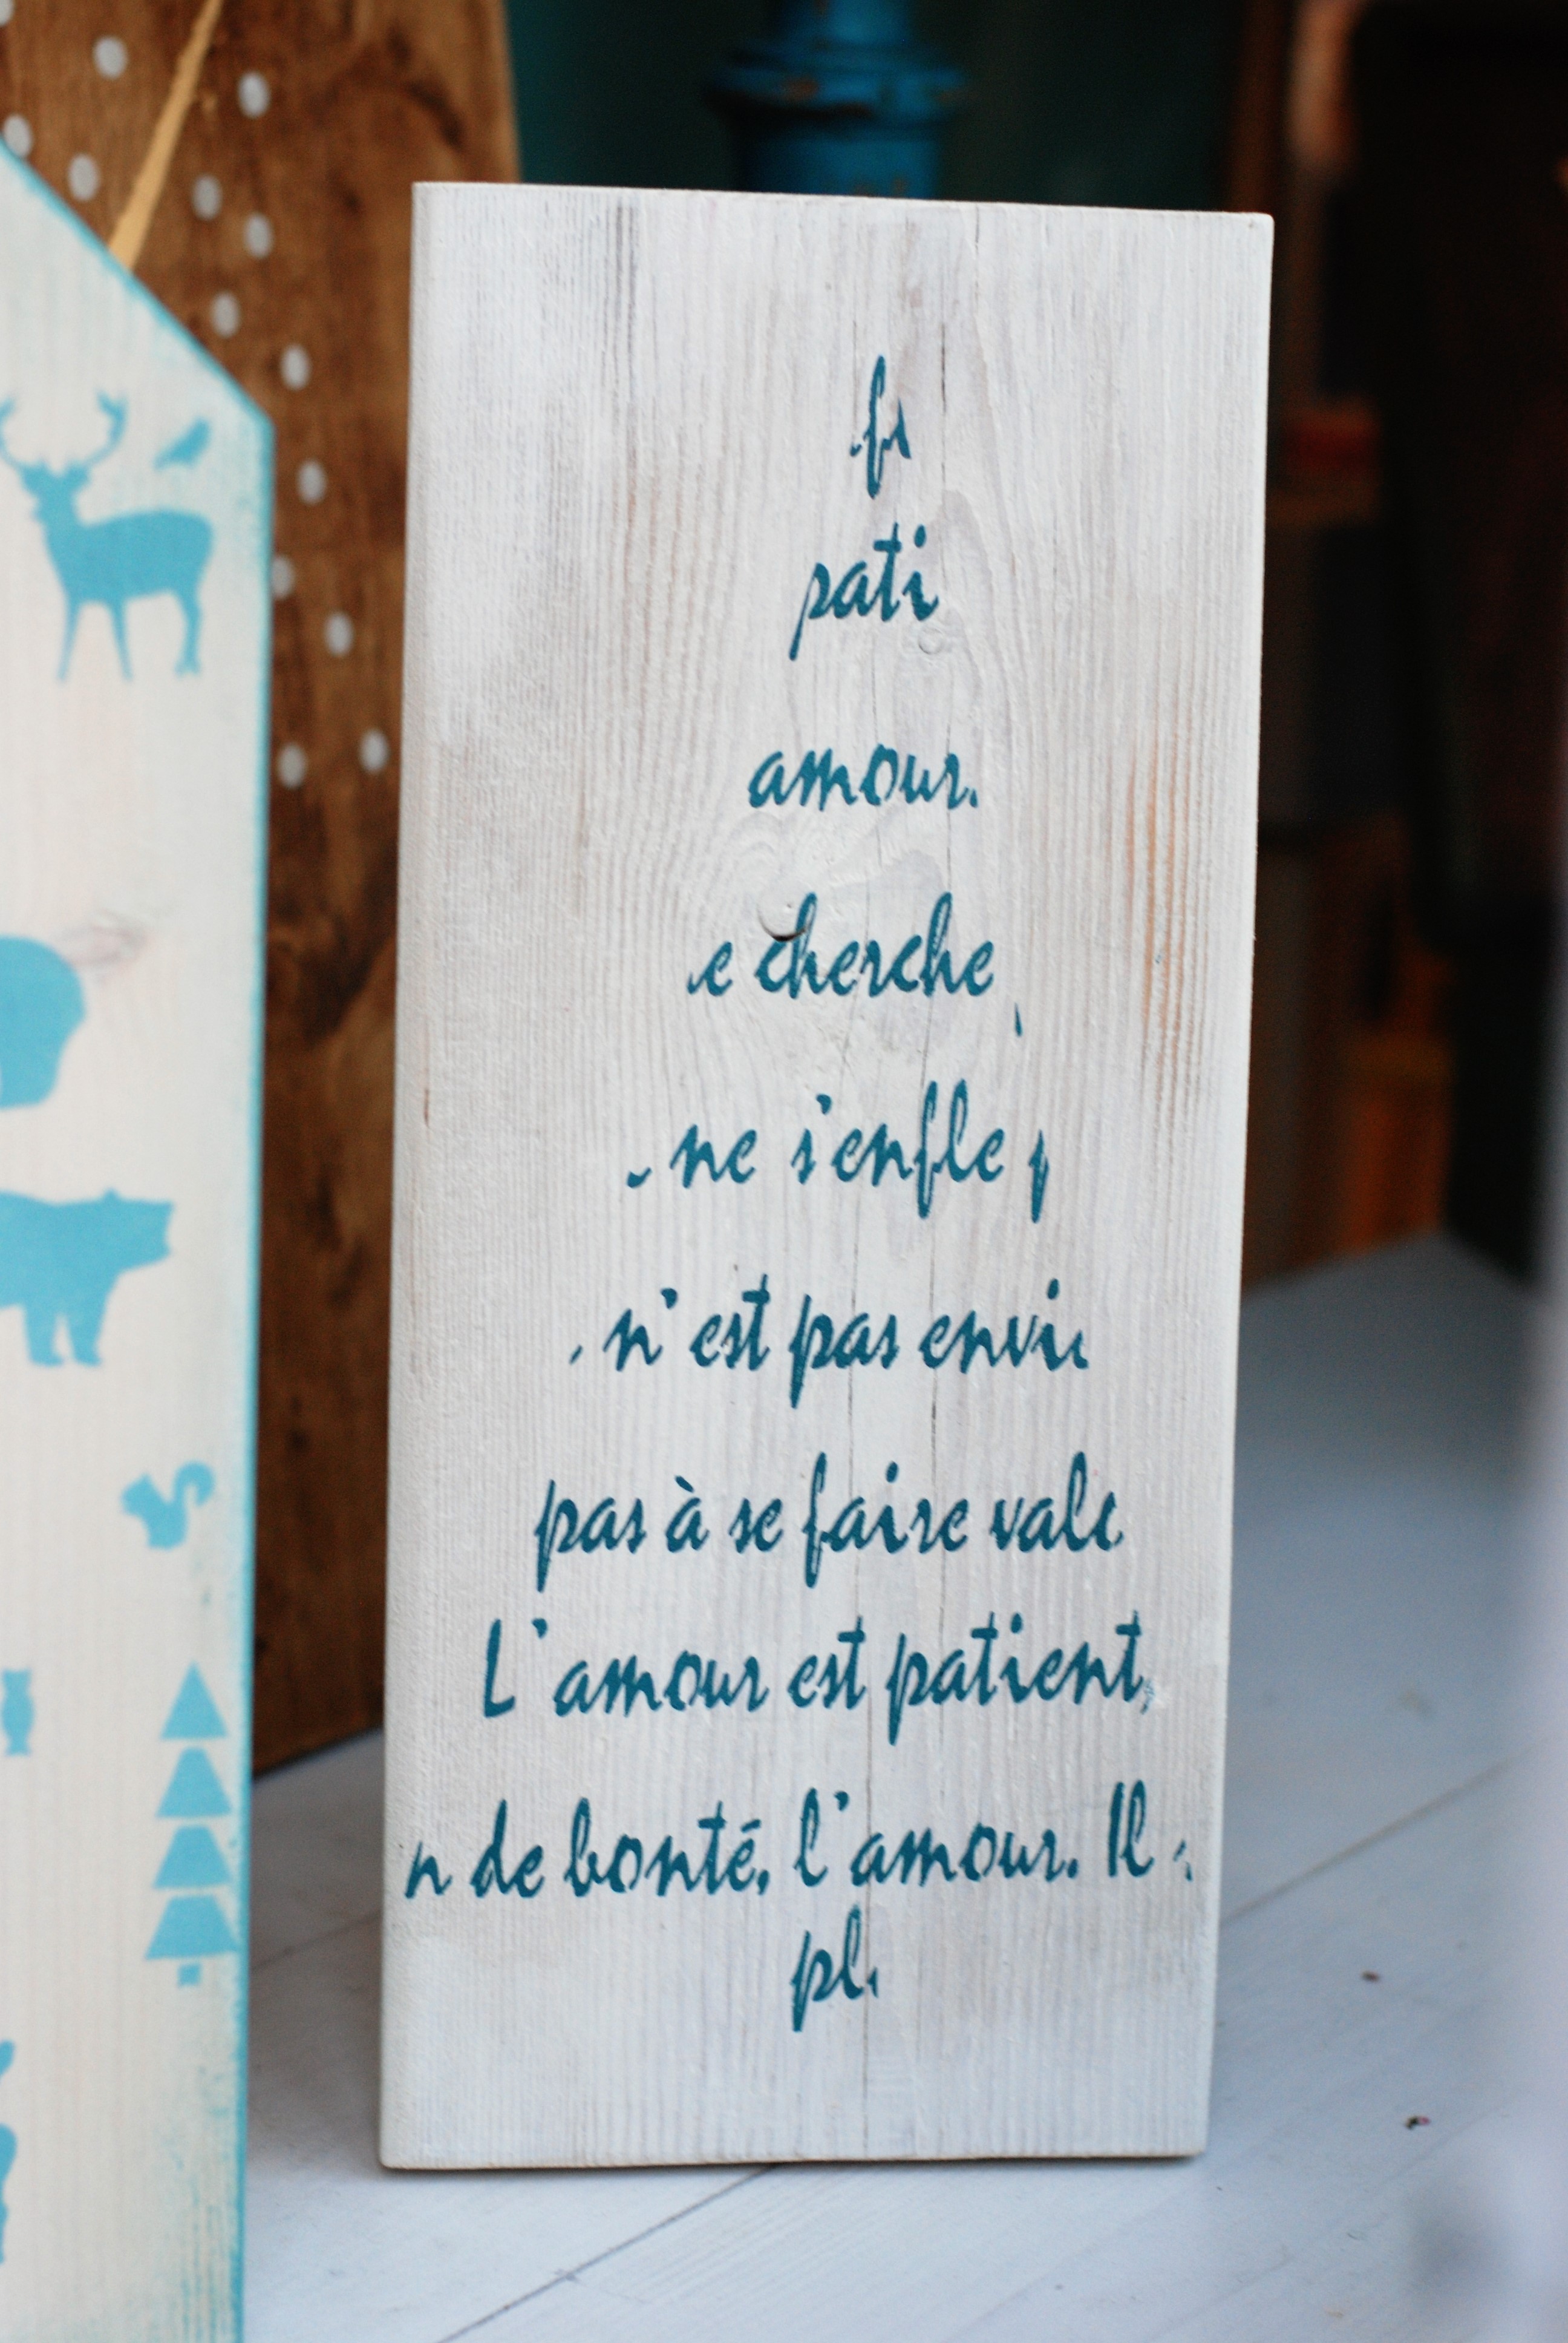 pati
amour.
e cherche
ne s'enfle
n'est pas envi
pas à se faire vale
L'amour est patient,
n de bonté, l'amour. Il
pl